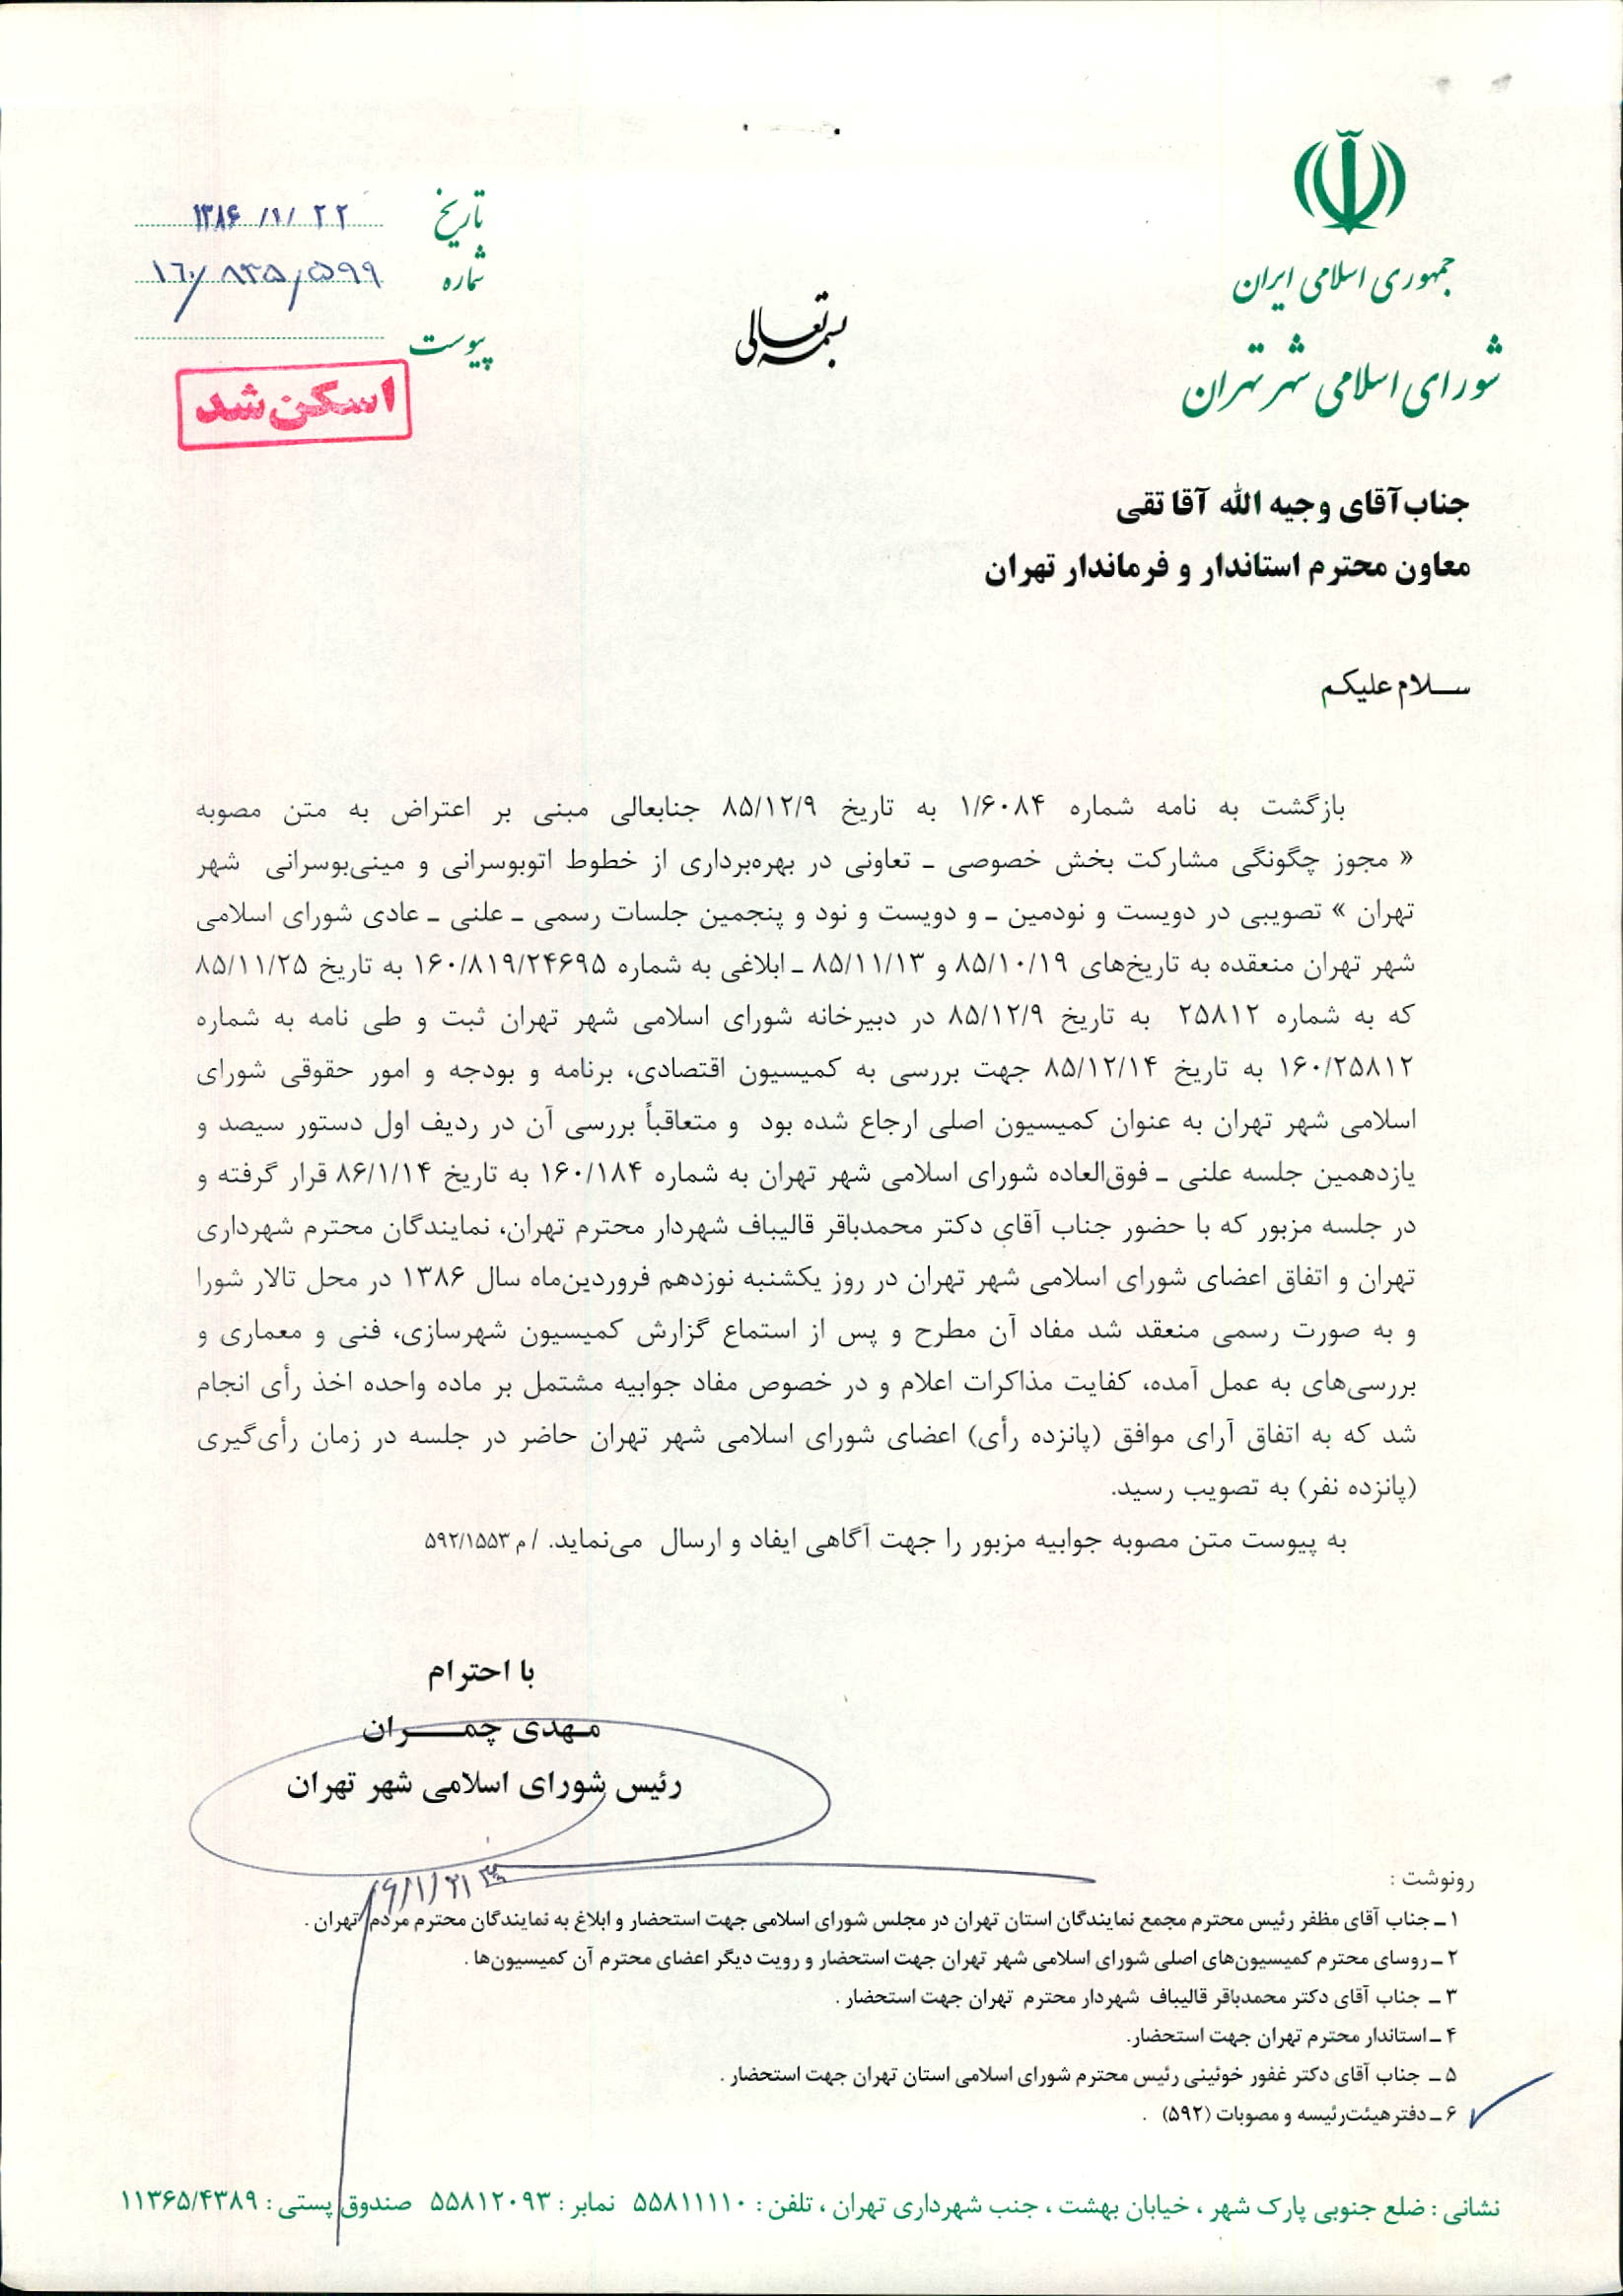 جمهوری اسلامی ایران
شورای اسلامی شهر تهران
بسمه تعالی
تاریخ ۱۳۸۶/۱/۲۲
شماره ۱۶۰/۸۳۵/۵۹۹
پیوست
اسکن شد
جناب آقای وجیه الله آقا تقی
معاون محترم استاندار و فرماندار تهران
سلام علیکم
بازگشت به نامه شماره ۱/۶۰۸۴ به تاریخ ۸۵/۱۲/۹ جنابعالی مبنی بر اعتراض به متن مصوبه
« مجوز چگونگی مشارکت بخش خصوصی ـ تعاونی در بهره‌برداری از خطوط اتوبوسرانی و مینی‌بوسرانی شهر
تهران » تصویبی در دویست و نودمین ـ و دویست و نود و پنجمین جلسات رسمی ـ علنی ـ عادی شورای اسلامی
شهر تهران منعقده به تاریخ‌های ۸۵/۱۰/۱۹ و ۸۵/۱۱/۱۳ ـ ابلاغی به شماره ۱۶۰/۸۱۹/۲۴۶۹۵ به تاریخ ۸۵/۱۱/۲۵
که به شماره ۲۵۸۱۲ به تاریخ ۸۵/۱۲/۹ در دبیرخانه شورای اسلامی شهر تهران ثبت و طی نامه به شماره
۱۶۰/۲۵۸۱۲ به تاریخ ۸۵/۱۲/۱۴ جهت بررسی به کمیسیون اقتصادی، برنامه و بودجه و امور حقوقی شورای
اسلامی شهر تهران به عنوان کمیسیون اصلی ارجاع شده بود و متعاقباً بررسی آن در ردیف اول دستور سیصد و
یازدهمین جلسه علنی ـ فوق‌العاده شورای اسلامی شهر تهران به شماره ۱۶۰/۱۸۴ به تاریخ ۸۶/۱/۱۴ قرار گرفته و
در جلسه مزبور که با حضور جناب آقای دکتر محمدباقر قالیباف شهردار محترم تهران، نمایندگان محترم شهرداری
تهران و اتفاق اعضای شورای اسلامی شهر تهران در روز یکشنبه نوزدهم فروردین‌ماه سال ۱۳۸۶ در محل تالار شورا
و به صورت رسمی منعقد شد مفاد آن مطرح و پس از استماع گزارش کمیسیون شهرسازی، فنی و معماری و
بررسی‌های به عمل آمده، کفایت مذاکرات اعلام و در خصوص مفاد جوابیه مشتمل بر ماده واحده اخذ رأی انجام
شد که به اتفاق آرای موافق (پانزده رأی) اعضای شورای اسلامی شهر تهران حاضر در جلسه در زمان رأی‌گیری
(پانزده نفر) به تصویب رسید.
به پیوست متن مصوبه جوابیه مزبور را جهت آگاهی ایفاد و ارسال می‌نماید. / م ۵۹۲/۱۵۵۳
با احترام
مهدی چمران
رئیس شورای اسلامی شهر تهران
رونوشت :
۱ـ جناب آقای مظفر رئیس محترم مجمع نمایندگان استان تهران در مجلس شورای اسلامی جهت استحضار و ابلاغ به نمایندگان محترم مردم تهران .
۲ ـ روسای محترم کمیسیون‌های اصلی شورای اسلامی شهر تهران جهت استحضار و رویت دیگر اعضای محترم آن کمیسیون‌ها .
۳ ـ جناب آقای دکتر محمدباقر قالیباف شهردار محترم تهران جهت استحضار .
۴ ـ استاندار محترم تهران جهت استحضار.
۵ ـ جناب آقای دکتر غفور خوئینی رئیس محترم شورای اسلامی استان تهران جهت استحضار .
۶ ـ دفتر هیئت‌رئیسه و مصوبات (۵۹۲) .
نشانی : ضلع جنوبی پارک شهر ، خیابان بهشت ، جنب شهرداری تهران ، تلفن : ۵۵۸۱۱۱۱۰ نمابر : ۵۵۸۱۲۰۹۳ صندوق پستی : ۱۱۳۶۵/۴۳۸۹